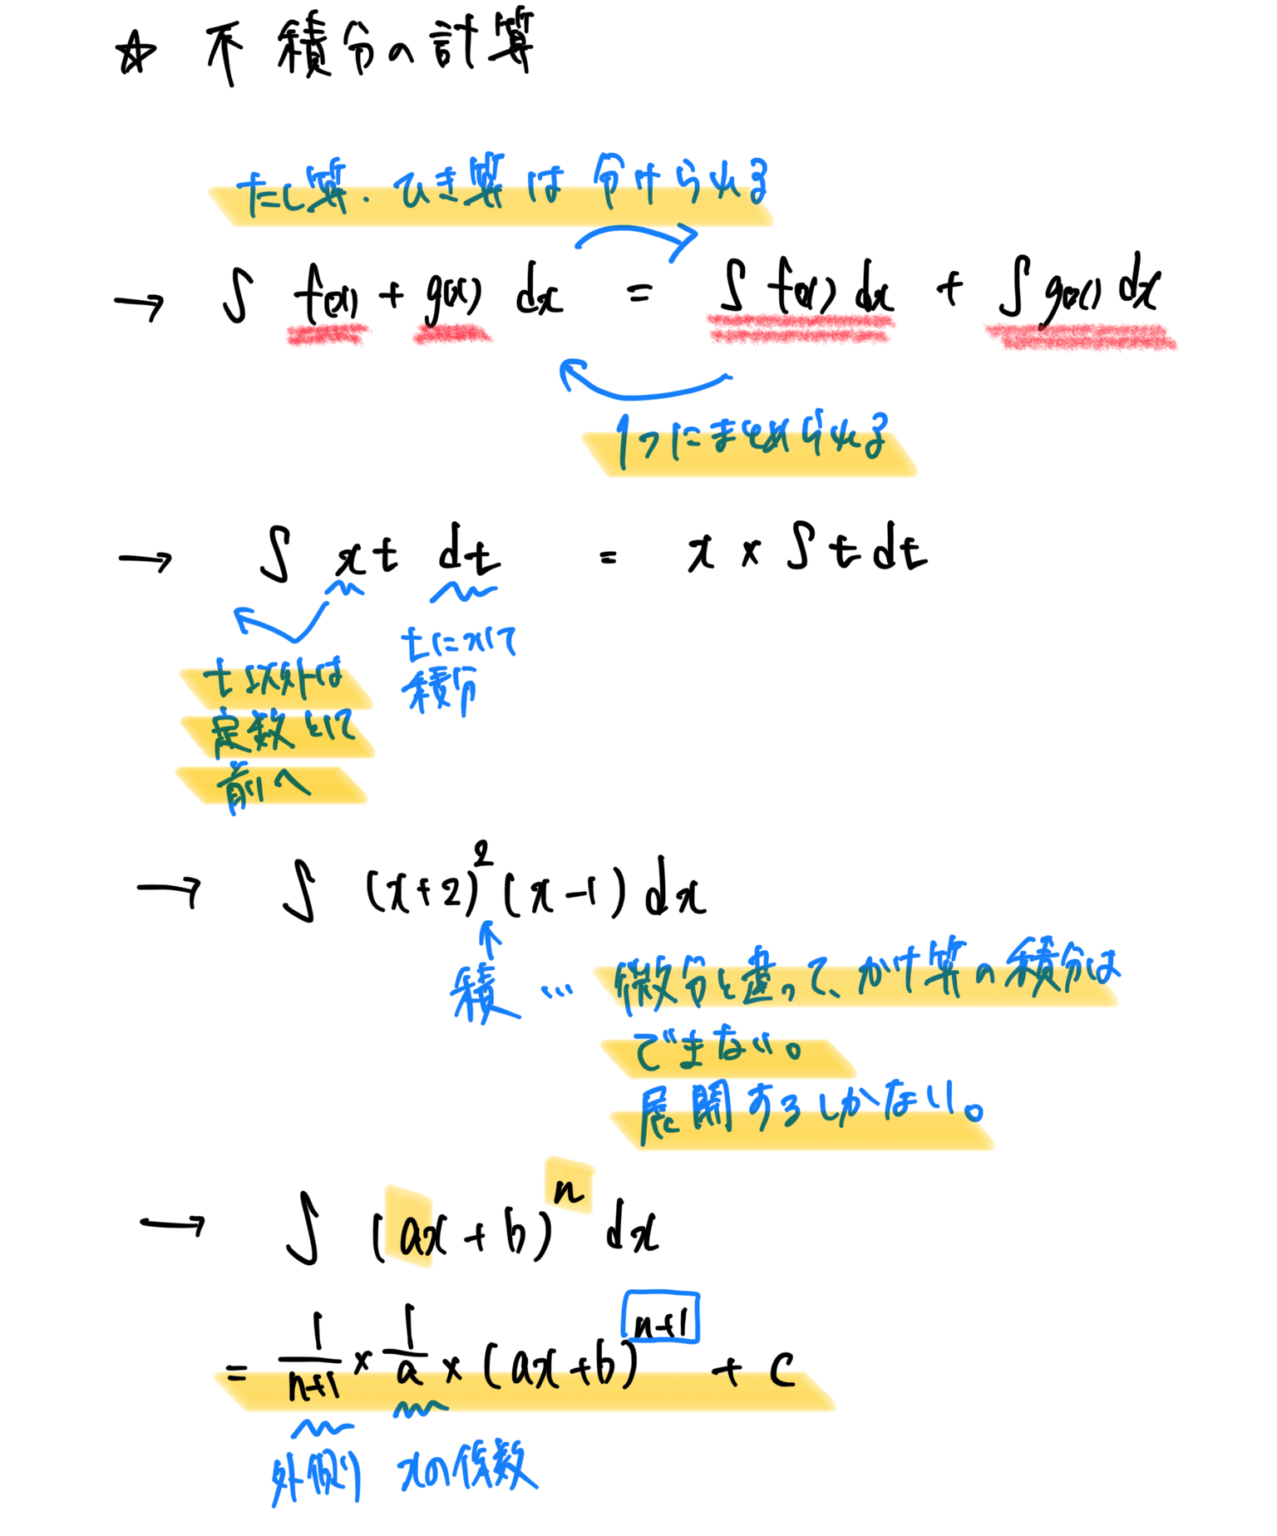 ☆ 不積分の計算
たし算・ひき算は分けられる
→ ∫ f(x) + g(x) dx = ∫ f(x) dx + ∫ g(x) dx
1つにまとめられる
→ ∫ xt dt = x × ∫ t dt
tについて
積分
t以外は
定数として
前へ
→ ∫ (x+2)²(x-1) dx
積 … 微分と違って、かけ算の積分は
できない。
展開するしかない。
→ ∫ (ax+b)ⁿ dx
= 1/(n+1) × 1/a × (ax+b)ⁿ⁺¹ + C
外側 xの係数